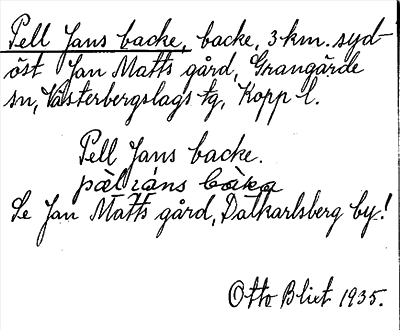 Pell Jans backe, backe, 3 km. syd-
öst Jan Matts gård, Grangärde
sn, Västerbergslags tg, Kopp l.
Pell Jans backe.
pæl ià̀ns bàka
Se Jan Matts gård, Dalkarlsberg by!
Otto Blixt 1935.